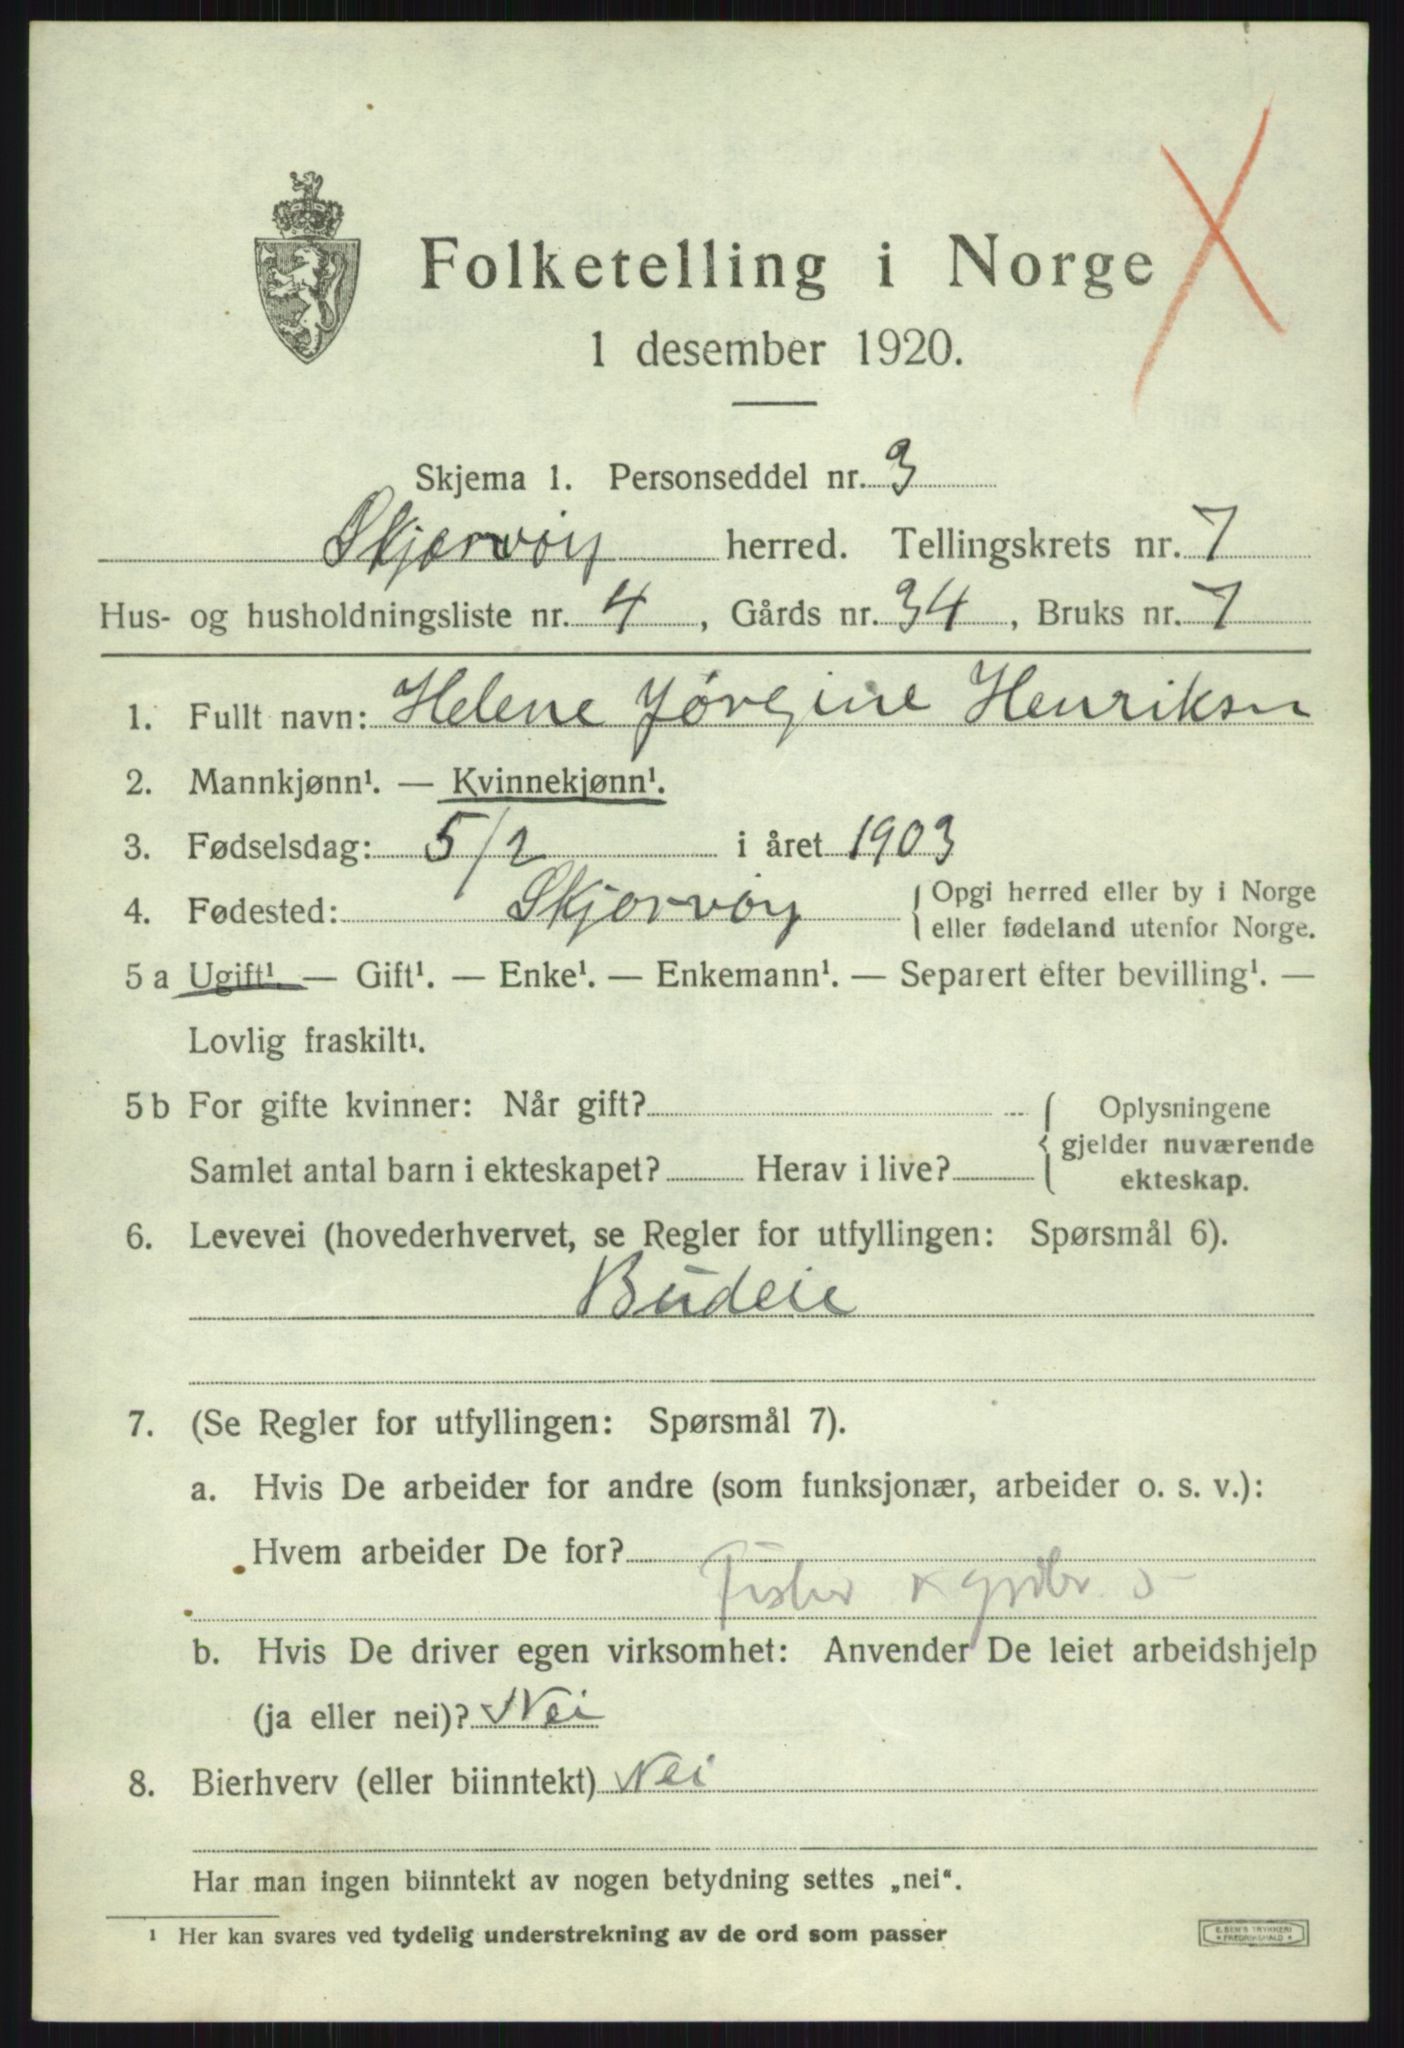 Folketelling i Norge
1 desember 1920.
Skjema 1. Personseddel nr. 3
Skjervöy herred. Tellingskrets nr. 7
Hus- og husholdningsliste nr. 4, Gårds nr. 34, Bruks nr. 7
1. Fullt navn: Helene Jørgine Henriksn
2. Mannkjønn¹. — Kvinnekjønn¹.
3. Fødselsdag: 5/2 i året 1903
4. Fødested: Skjervöy { Opgi herred eller by i Norge
eller fødeland utenfor Norge.
5 a Ugift¹. — Gift¹. — Enke¹. — Enkemann¹. — Separert efter bevilling¹. —
Lovlig fraskilt¹.
5 b For gifte kvinner: Når gift? { Oplysningene
gjelder nuværende
Samlet antal barn i ekteskapet? Herav i live?
ekteskap.
6. Levevei (hovederhvervet, se Regler for utfyllingen: Spørsmål 6).
Budeie
7. (Se Regler for utfyllingen: Spørsmål 7).
a. Hvis De arbeider for andre (som funksjonær, arbeider o. s. v.):
Hvem arbeider De for?
Fisker x
b. Hvis De driver egen virksomhet: Anvender De leiet arbeidshjelp
(ja eller nei)? Nei
8. Bierhverv (eller biinntekt) Nei
Har man ingen biinntekt av nogen betydning settes „nei“.
¹ Her kan svares ved tydelig understrekning av de ord som passer
E. SEM'S TRYKKERI
* FREDRIKSHALD *